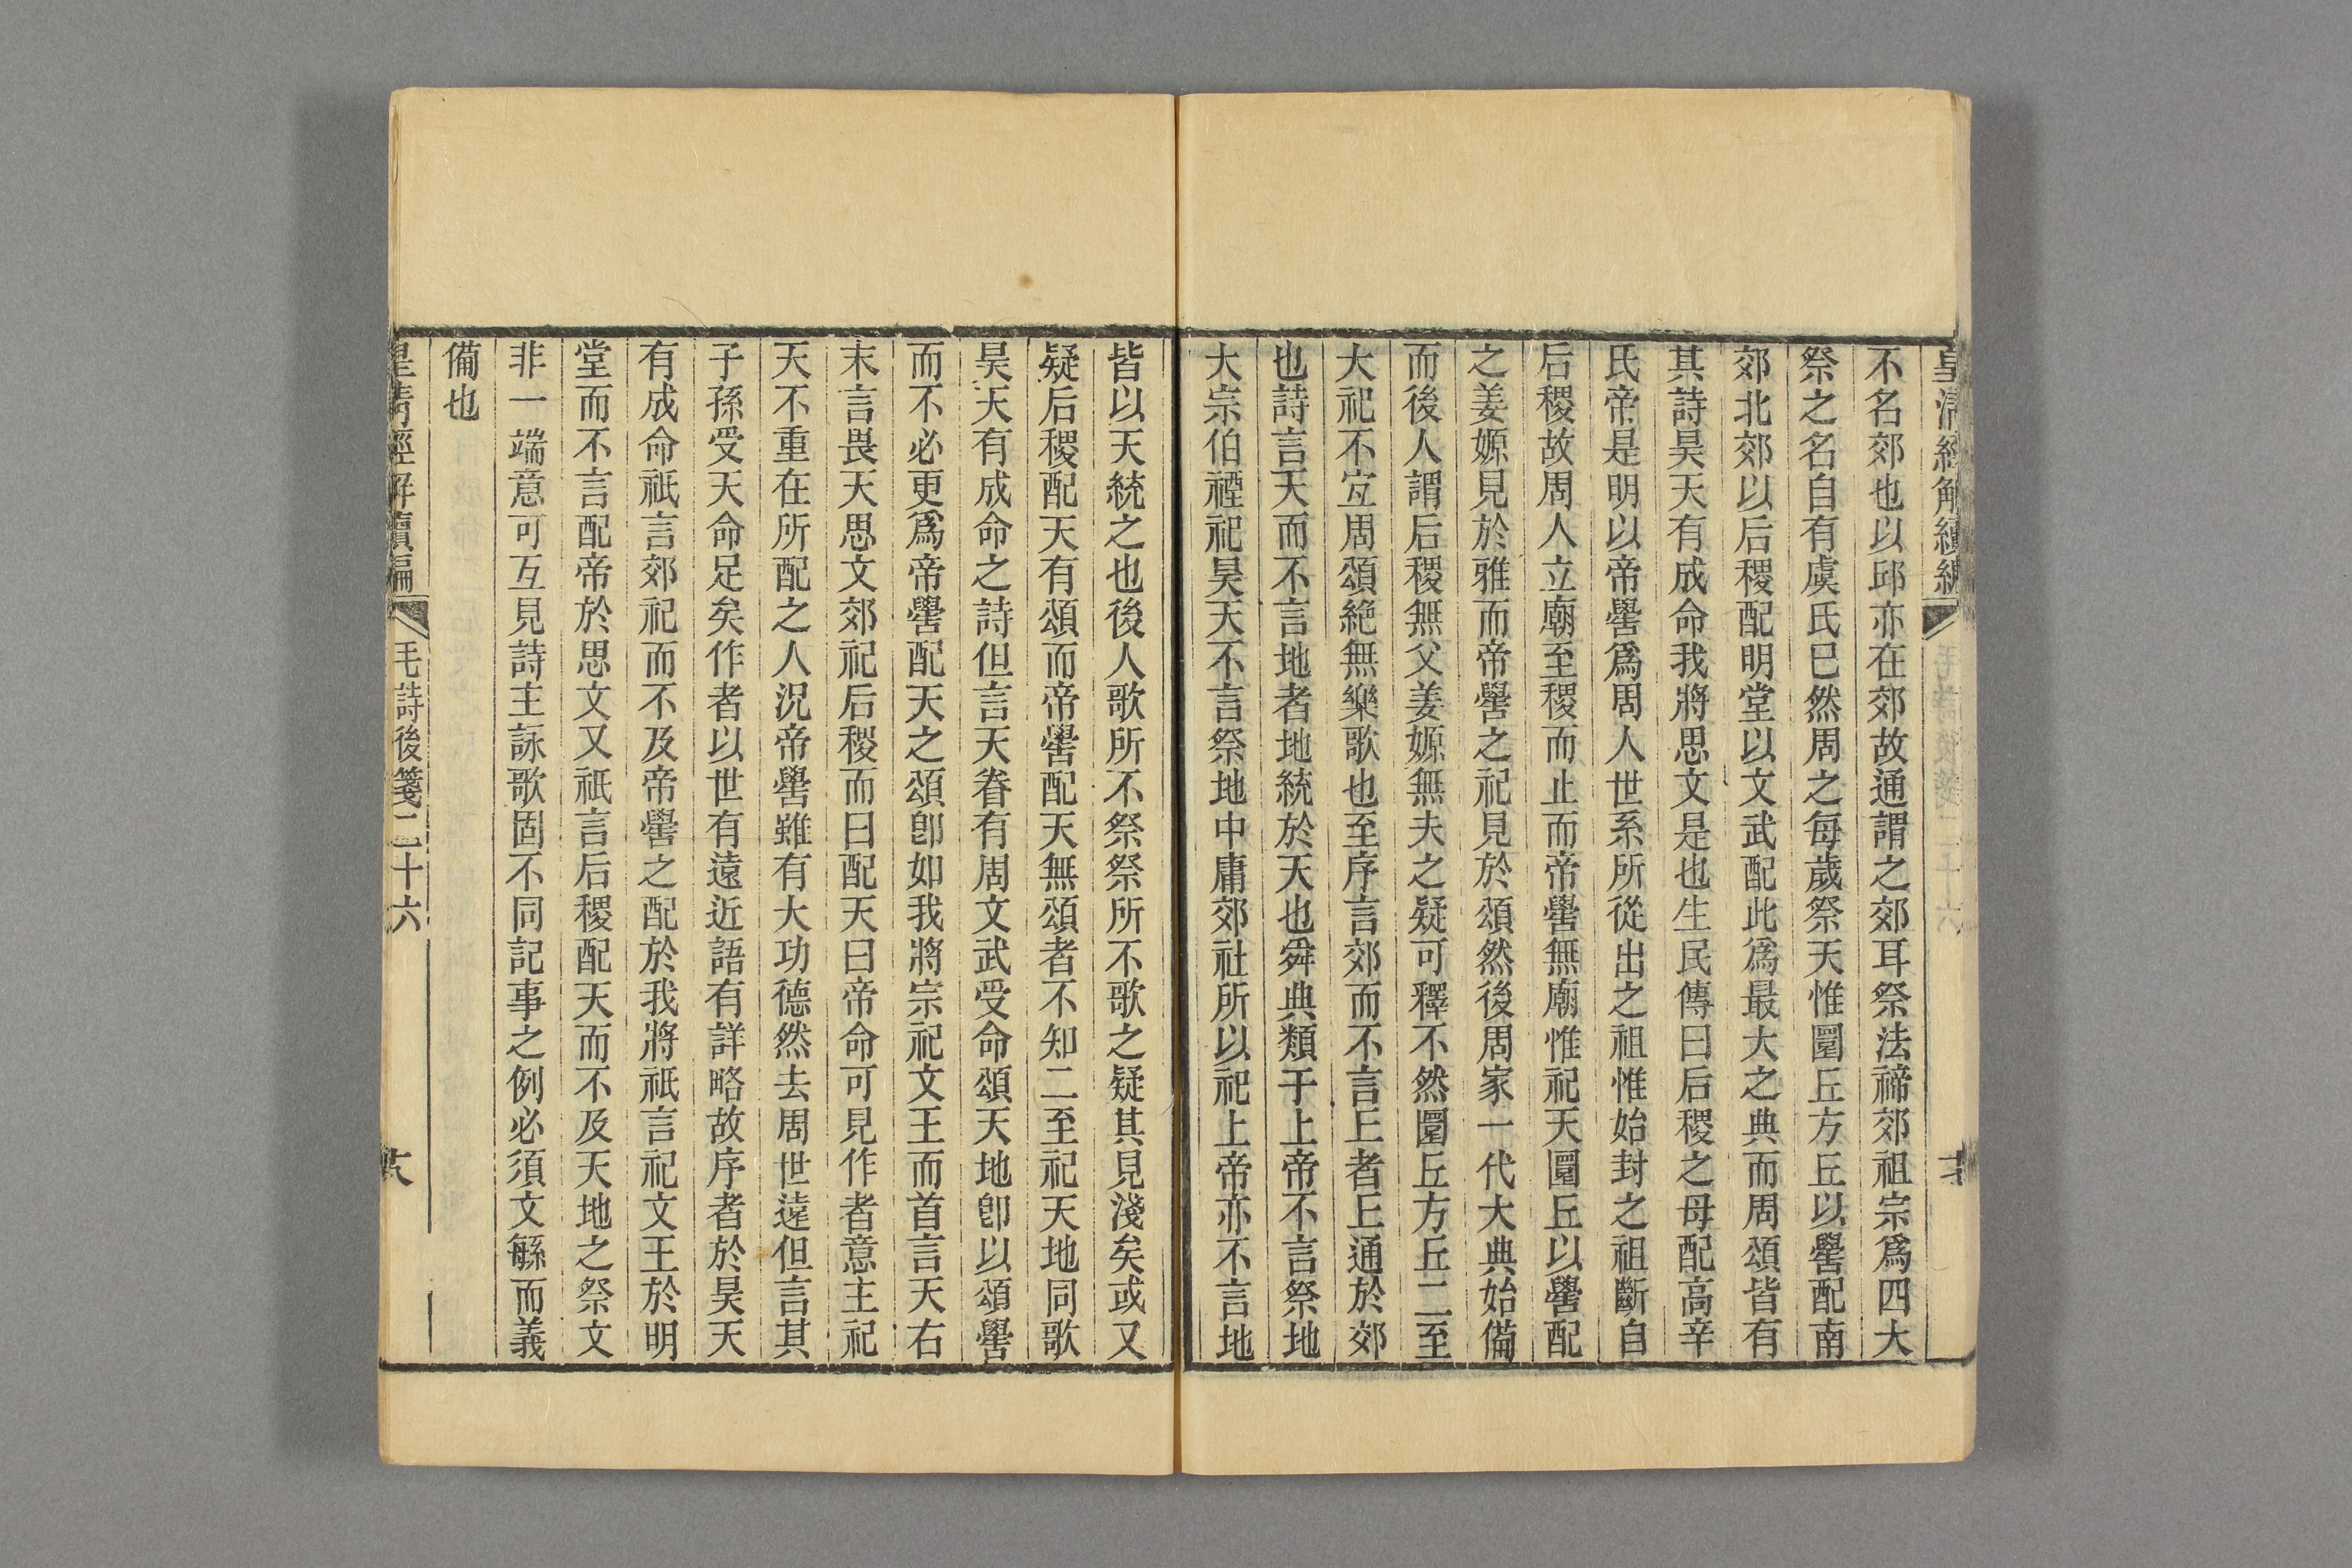 皇清經解續編
不名郊也以邱亦在郊故通謂之郊耳祭法禘郊祖宗爲四大
祭之名自有虞氏已然周之每歲祭天惟圜丘方丘以嚳配南
郊北郊以后稷配明堂以文武配此爲最大之典而周頌皆有
其詩昊天有成命我將思文是也生民傳曰后稷之母配高辛
氏帝是明以帝嚳爲周人世系所從出之祖惟始封之祖斷自
后稷故周人立廟至稷而止而帝嚳無廟惟祀天圜丘以嚳配
之姜嫄見於雅而帝嚳之祀見於頌然後周家一代大典始備
而後人謂后稷無父姜嫄無夫之疑可釋不然圜丘方丘二至
大祀不宐周頌絶無樂歌也至序言郊而不言丘者丘通於郊
也詩言天而不言地者地統於天也舜典類于上帝不言祭地
大宗伯禋祀昊天不言祭地中庸郊社所以祀上帝亦不言地
皆以天統之也後人歌所不祭祭所不歌之疑其見淺矣或又
疑后稷配天有頌而帝嚳配天無頌者不知二至祀天地同歌
昊天有成命之詩但言天眷有周文武受命頌天地卽以頌嚳
而不必更爲帝嚳配天之頌卽如我將宗祀文王而首言天右
末言畏天思文郊祀后稷而曰配天曰帝命可見作者意主祀
天不重在所配之人況帝嚳雖有大功德然去周世遠但言其
子孫受天命足矣作者以世有遠近語有詳略故序者於昊天
有成命祇言郊祀而不及帝嚳之配於我將祇言祀文王於明
堂而不言配帝於思文又祇言后稷配天而不及天地之祭文
非一端意可互見詩主詠歌固不同記事之例必須文緐而義
備也
皇清經解續編 毛詩後箋二十六